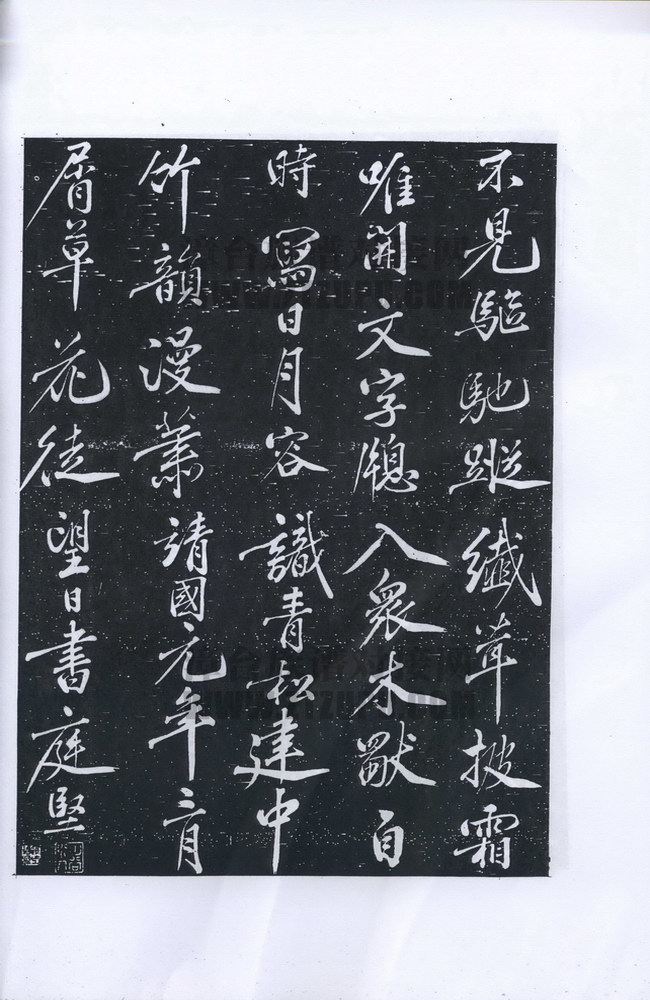 不見驅馳蹤
唯開文字牕
時寫日月容
竹韻漫蕭
屑草花徒
纖茸披霜
入衆木自
識青松建中
靖國元年三月
望日書庭堅